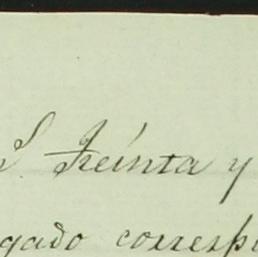 S Treinta y
gado corresp